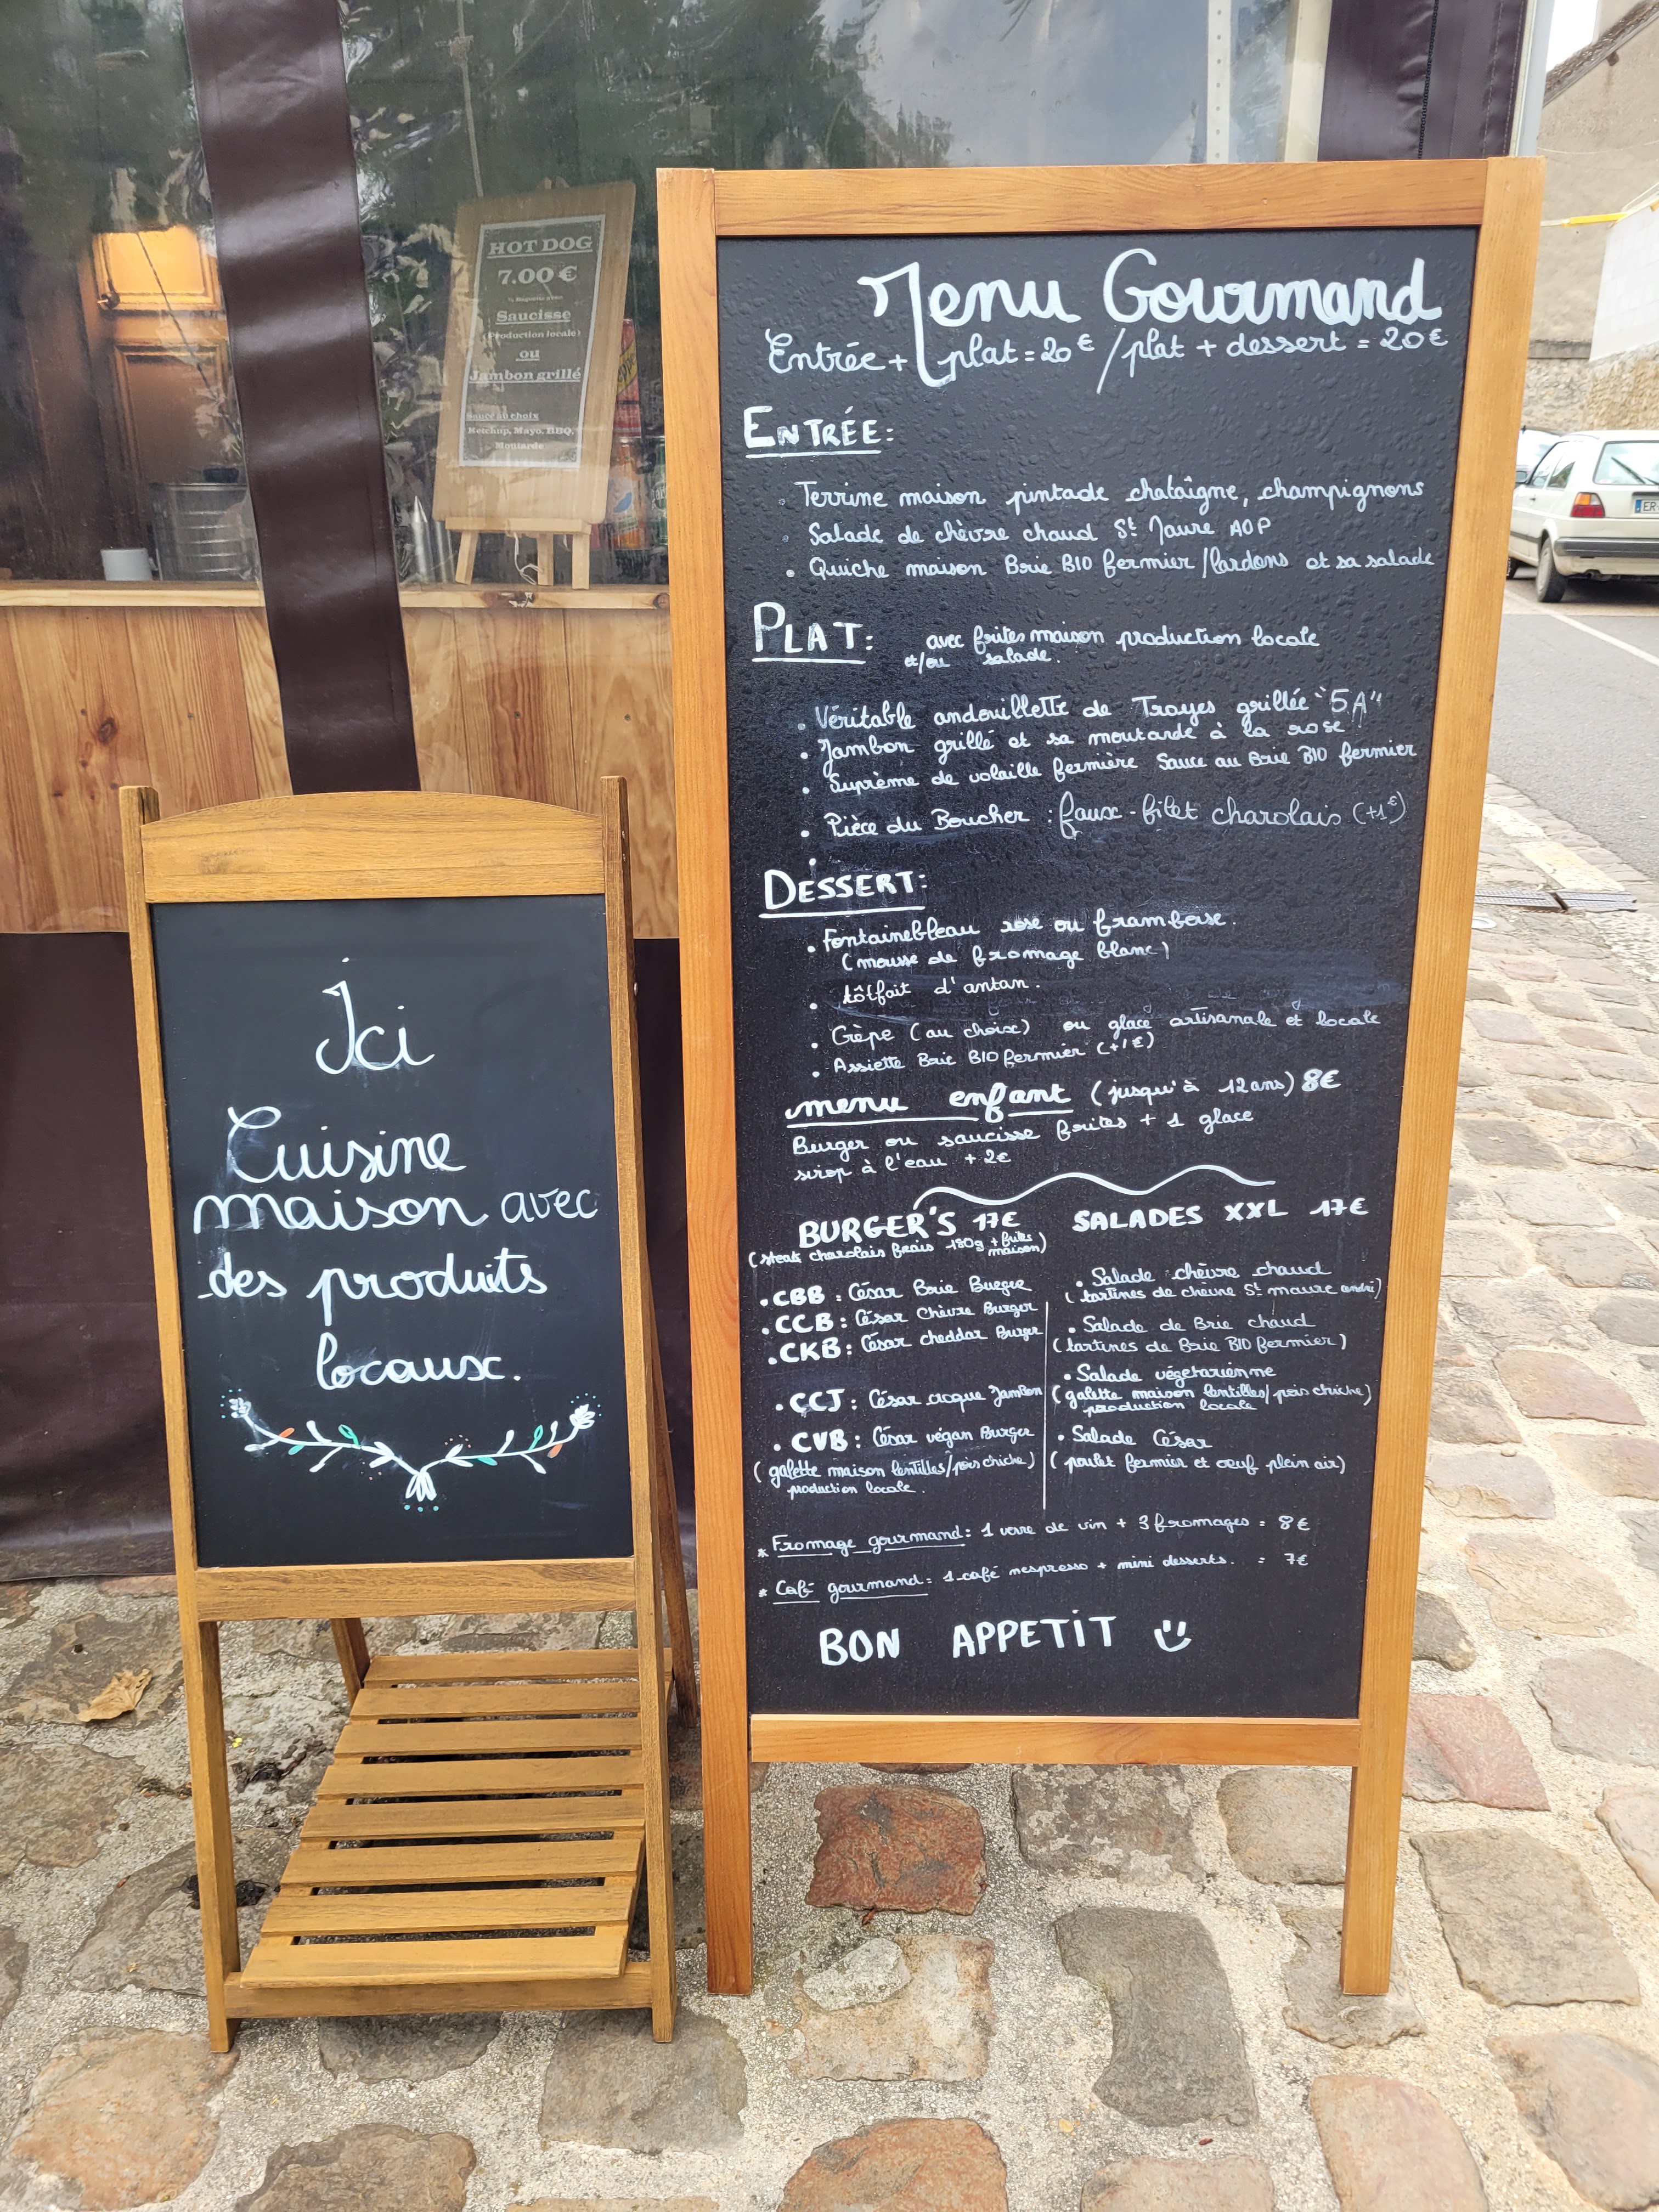 HOT DOG
7.00 €
½ Baguette avec
Saucisse
(Production locale)
ou
Jambon grillé
Sauce au choix
Ketchup, Mayo, BBQ,
Moutarde
Ici
Cuisine
maison avec
des produits
locaux.
Menu Gourmand
Entrée + plat = 20€ / plat + dessert = 20€
ENTRÉE:
• Terrine maison pintade chataîgne, champignons
• Salade de chèvre chaud St Maure AOP
• Quiche maison Brie BIO fermier / lardons et sa salade
PLAT: avec frites maison production locale
et/ou salade.
• Véritable andouillette de Troyes grillée "5A"
• Jambon grillé et sa moutarde à la rose
• Suprème de volaille fermière Sauce au Brie BIO fermier
• Pièce du Boucher : faux-filet charolais (+1€)
DESSERT:
• Fontainebleau rose ou framboise.
(mousse de fromage blanc)
• tôtfait d'antan.
• Crèpe (au choix) ou glace artisanale et locale
• Assiette Brie BIO fermier (+1€)
menu enfant (jusqu'à 12 ans) 8€
Burger ou saucisse frites + 1 glace
sirop à l'eau + 2€
BURGER'S 17€
(steak charolais frais 180g + frites maison)
• CBB : César Brie Burger
• CCB : César Chèvre Burger
• CKB : César cheddar Burger
• CCJ : César croque Jambon
• CVB : César végan Burger
(galette maison lentilles/pois chiche)
production locale.
SALADES XXL 17€
• Salade chèvre chaud
(tartines de chèvre St maure)
• Salade de Brie chaud
(tartines de Brie BIO fermier)
• Salade végetarienne
(galette maison lentilles/pois chiche)
production locale
• Salade César
(poulet fermier et oeuf plein air)
* Fromage gourmand: 1 verre de vin + 3 fromages = 8€
* Café gourmand: 1 café nespresso + mini desserts. = 7€
BON APPETIT